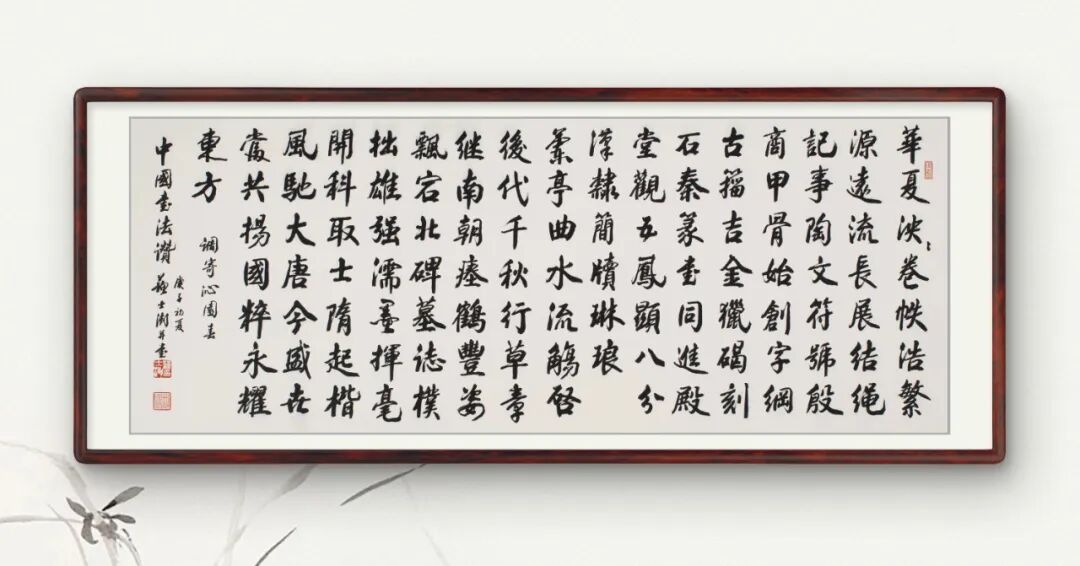 華夏泱〻卷帙浩繁
源遠流長展結繩
記事陶文符號殷
商甲骨始創字綱
古籀吉金獵碣刻
石秦篆書同進殿
堂觀五鳳顯八分
漢隸簡牘琳琅
蘭亭曲水流觴啓
後代千秋行草章
继南朝瘞鶴豐姿
飄宕北碑墓誌樸
拙雄强濡墨揮毫
開科取士隋起楷
風馳大唐今盛世
當共揚國粹永耀
東方
調寄沁園春
庚子初夏
中國書法讚 蘇士澍并書